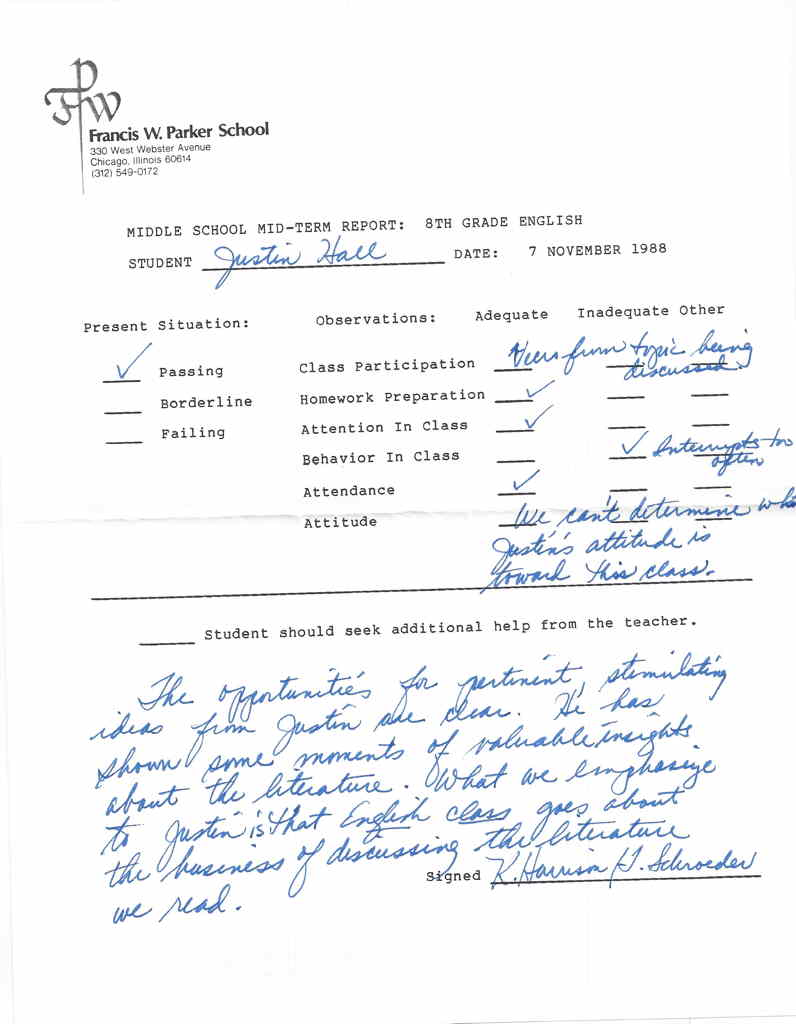 FPW
Francis W. Parker School
330 West Webster Avenue
Chicago, Illinois 60614
(312) 549-0172
MIDDLE SCHOOL MID-TERM REPORT: 8TH GRADE ENGLISH
STUDENT Justin Hall DATE: 7 NOVEMBER 1988
Present Situation: Observations: Adequate Inadequate Other
✓ Passing Class Participation Veers from topic being
discussed.
Borderline Homework Preparation ✓
Failing Attention In Class ✓
Behavior In Class ✓ Interrupts too
often
Attendance ✓
Attitude We can't determine
Justin's attitude is
toward this class.
Student should seek additional help from the teacher.
The opportunities for pertinent, stimulating
ideas from Justin are clear. He has
shown some moments of valuable insights
about the literature. What we emphasize
to Justin is that English class goes about
the business of discussing the literature
we read.
Signed K. Harrison/J. Schroeder